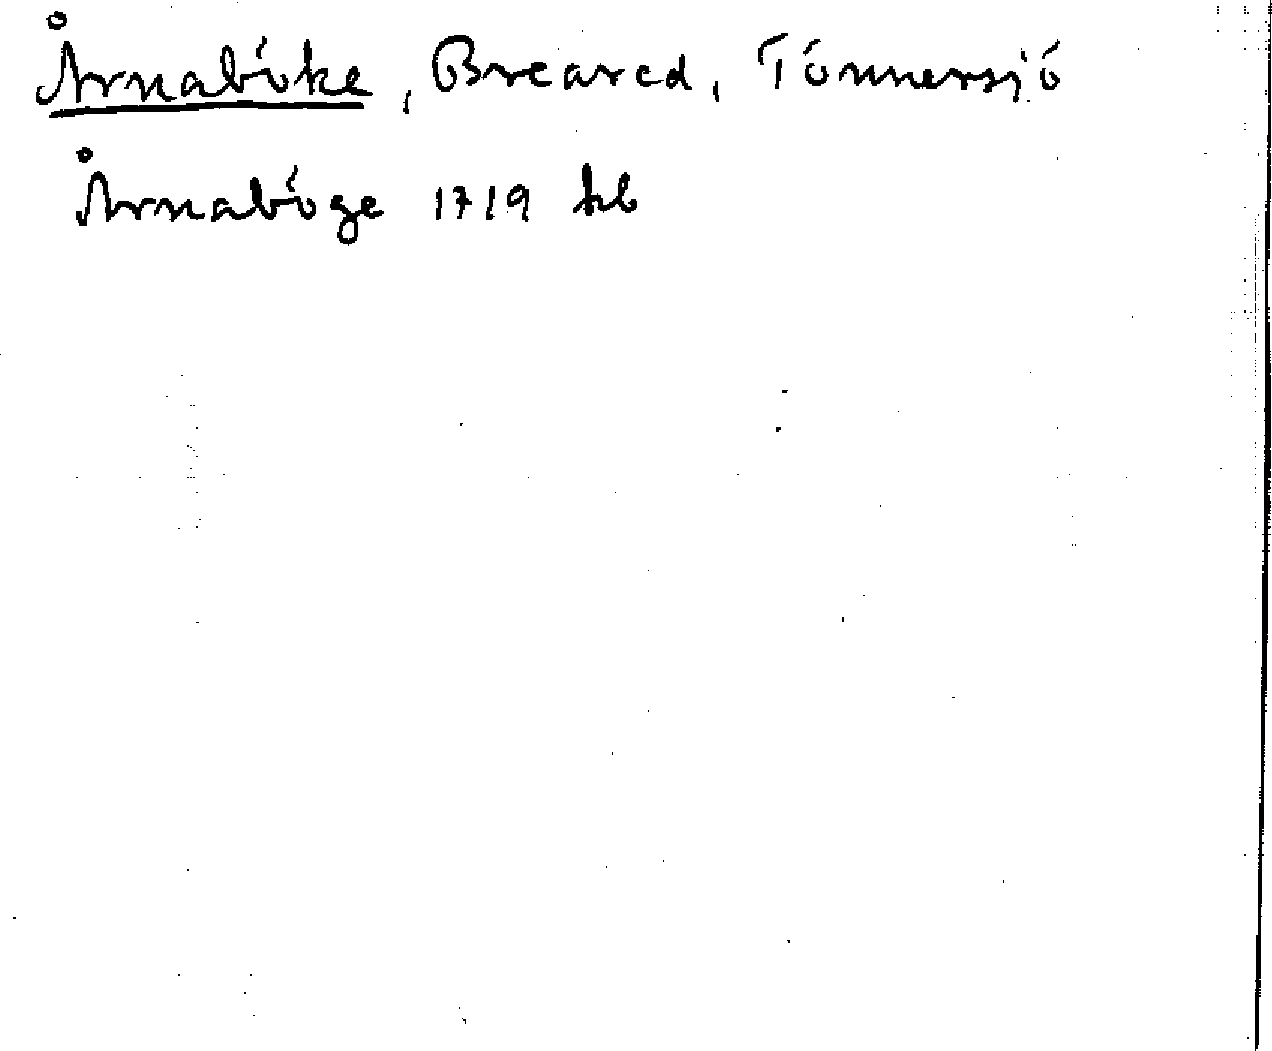 Årnaböke, Breared, Tönnersjö
Årnaböge 1719 kb